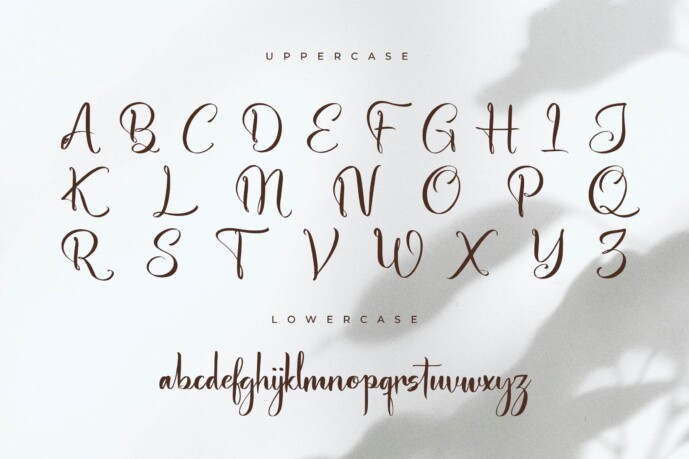 UPPERCASE
A B C D E F G H I J
K L M N O P Q
R S T V W X Y Z
LOWERCASE
abcdefghijklmnopqrstuvwxyz